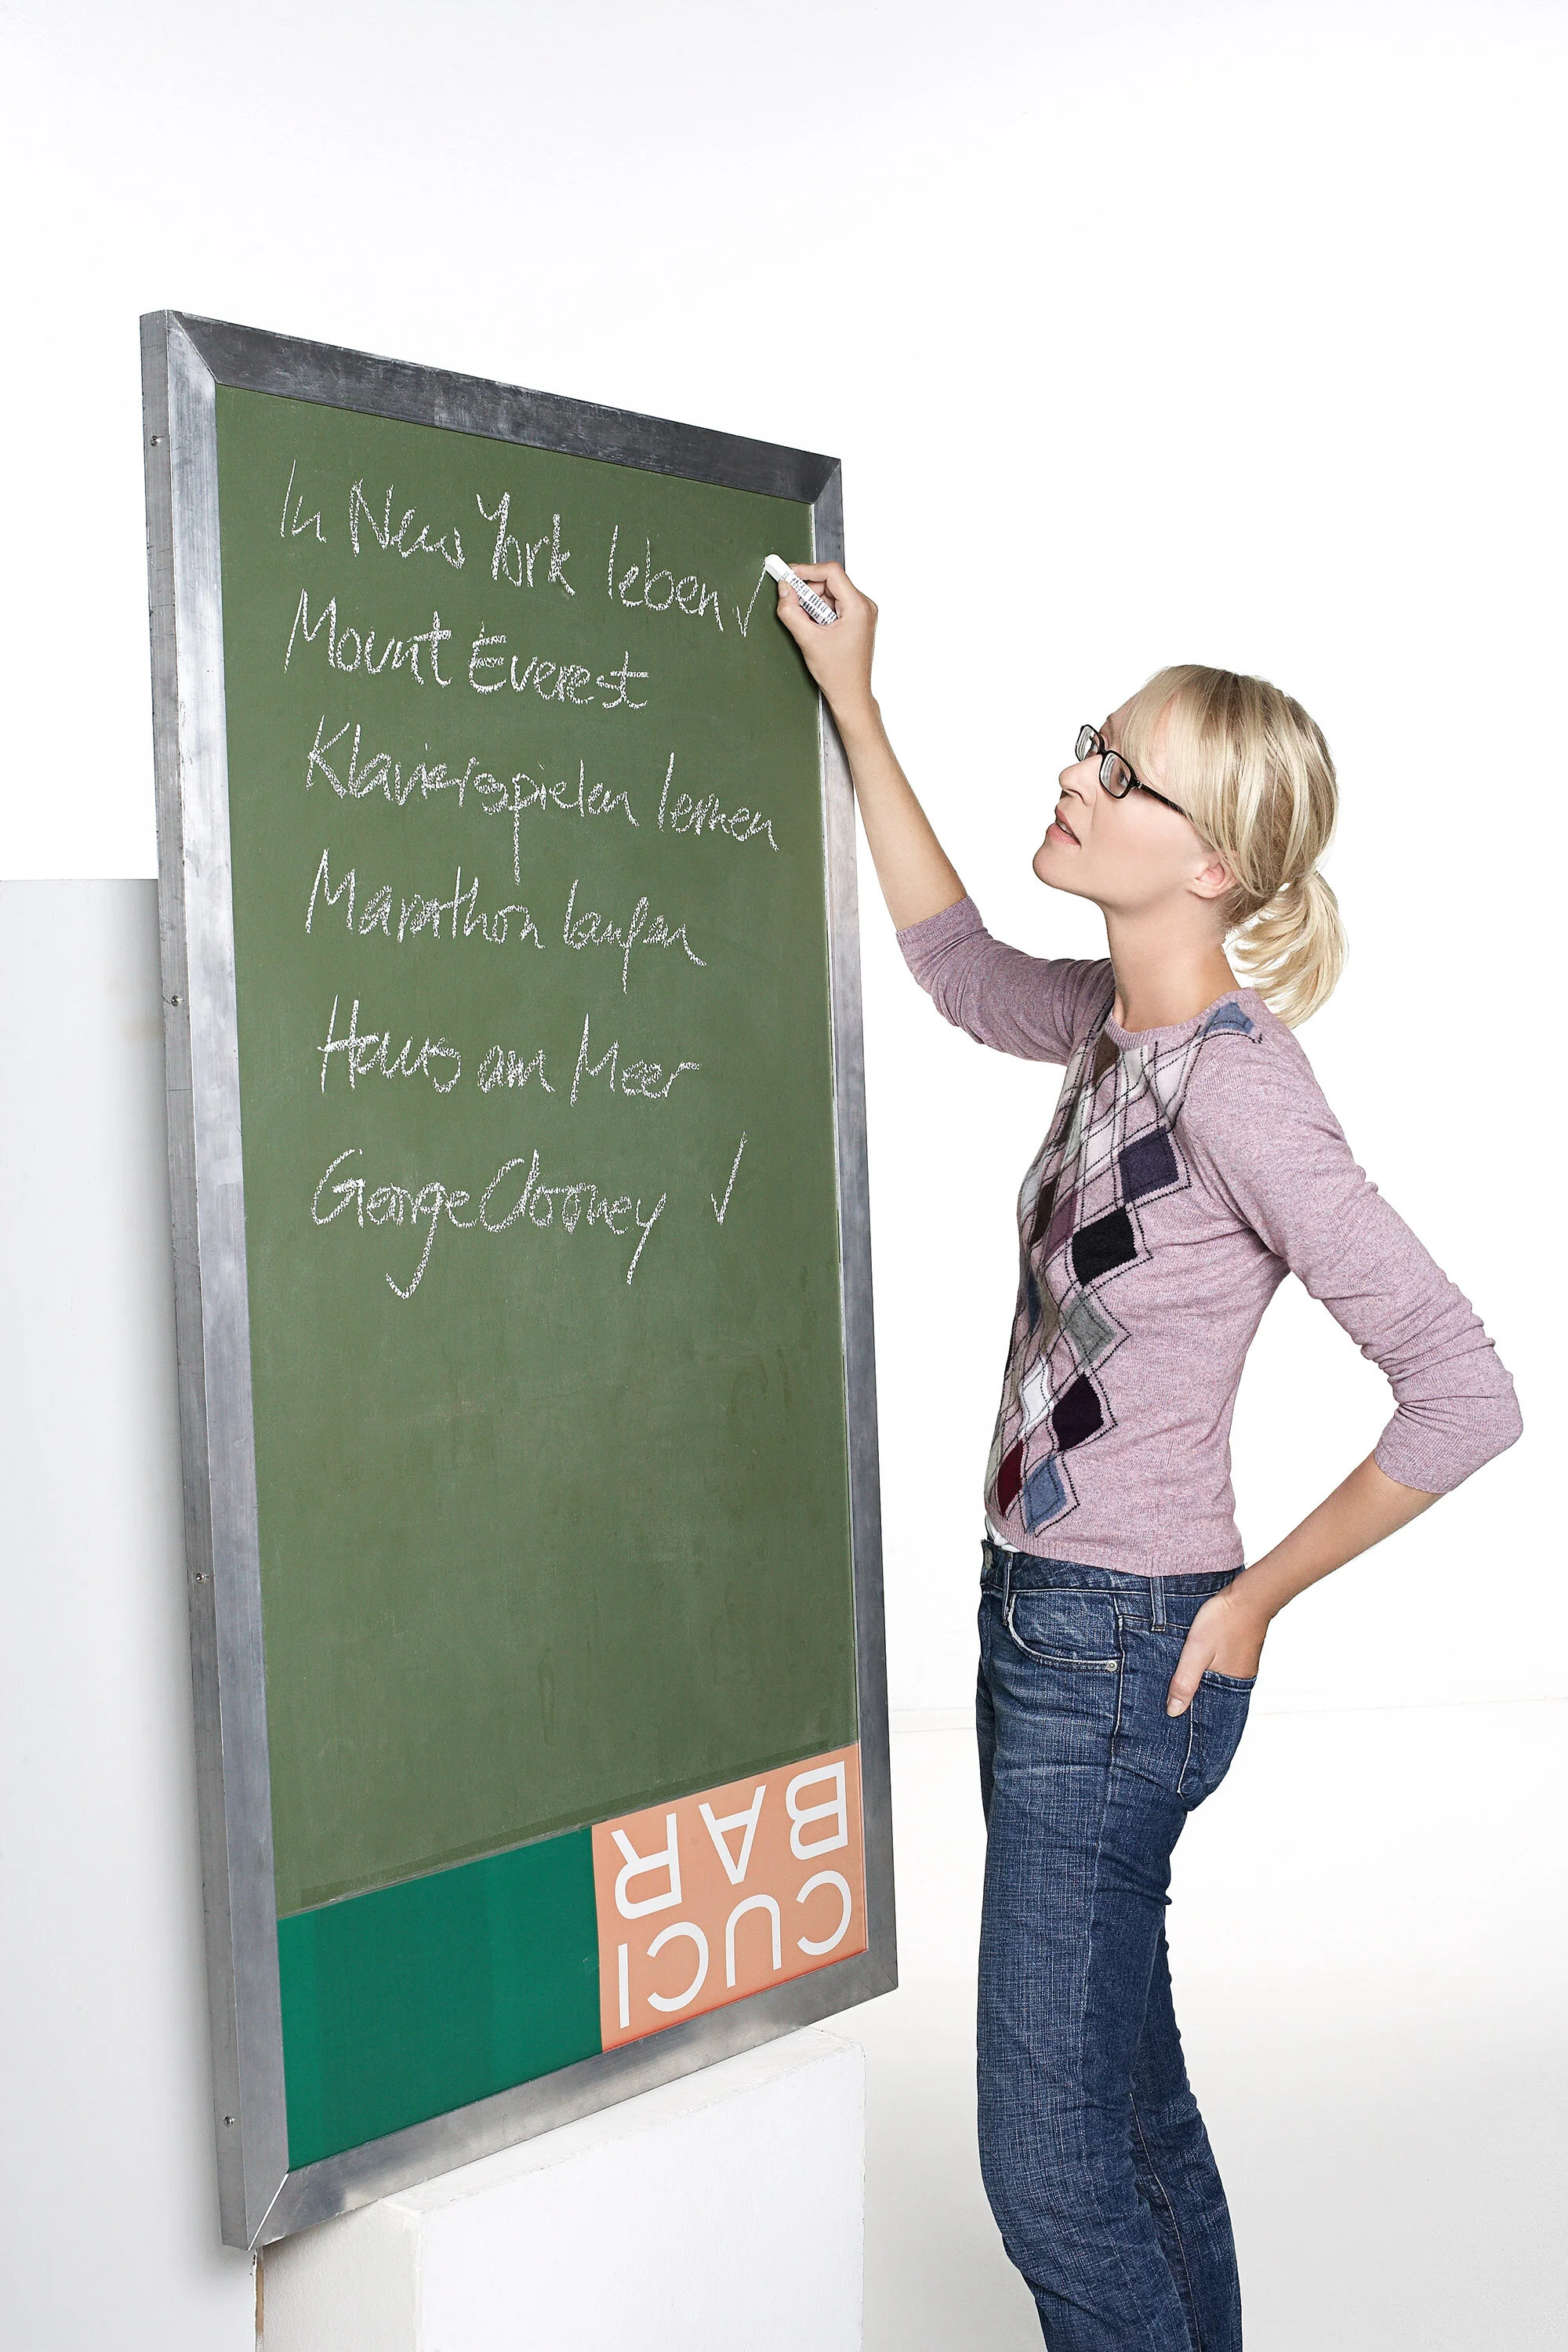 In New York leben ✓
Mount Everest
Klavierspielen lernen
Marathon laufen
Haus am Meer
George Clooney ✓
CUCI
BAR